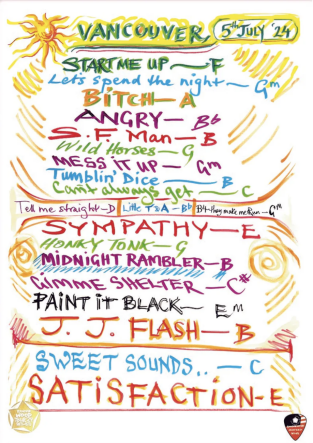 VANCOUVER 5TH JULY '24
START ME UP — F
Let's spend the night — Gm
BITCH — A
ANGRY — Bb
S.F. Man — B
Wild Horses — G
MESS IT UP — Gm
Tumblin' Dice — B
Can't always get — C
Tell me straight — D Little T&A — Bb B4 they make me Run — Gm
SYMPATHY — E
HONKY TONK — G
MIDNIGHT RAMBLER — B
GIMME SHELTER — C#
PAINT it BLACK — Em
J. J. FLASH — B
SWEET SOUNDS.. — C
SATISFACTION - E